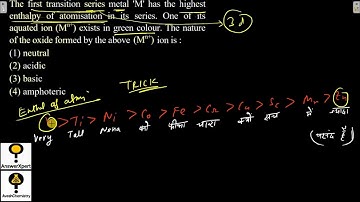 The first transition series metal 'M' has the highest
enthalpy of atomisation in its series. One of its
aquated ion (Mⁿ⁺) exists in green colour. The nature
of the oxide formed by the above (Mⁿ⁺) ion is :
3d
(1) neutral
(2) acidic
(3) basic
(4) amphoteric
TRICK
> Ti > Ni > Co > Fe > Cr > Cu > Sc > Mn > Zn
Very Tall Nona को
AnswerXpert